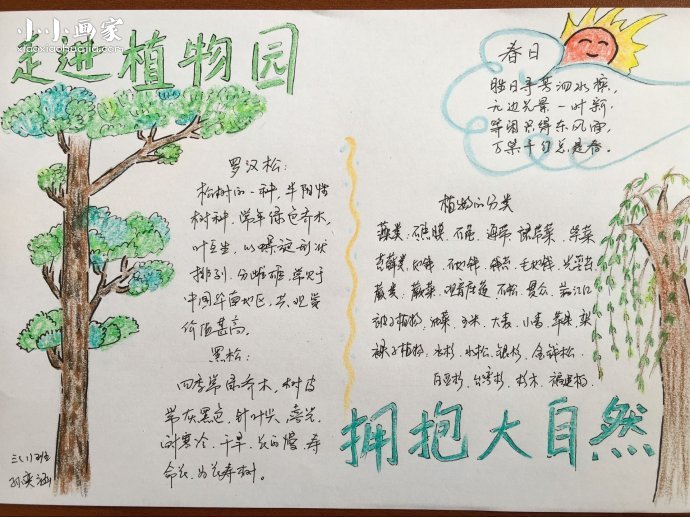 小小画家
xiaoxiaohuajia.com
走进植物园
春日
胜日寻芳泗水滨,
无边光景一时新,
等闲识得东风面,
万紫千红总是春。
罗汉松:
松树的一种,半阴性
树种,常年绿色乔木,
叶互生,以螺旋形状
排列,分雌雄,单产于
中国华南地区,其观赏
价值甚高。
黑松:
四季常绿乔木,树皮
带灰黑色,针叶尖,喜光,
耐寒冷,干旱,长的慢,寿
命长,为长寿树。
植物的分类
藻类:
海带
紫菜
苔藓类:
蕨类:蕨菜,观音座莲 石松 贯众
被子植物:油菜 玉米 大麦 小麦 苹果 梨
裸子植物:水杉 水松,银杉,金钱松
台湾杉 杉木 福建柏
拥抱大自然
三(1)班